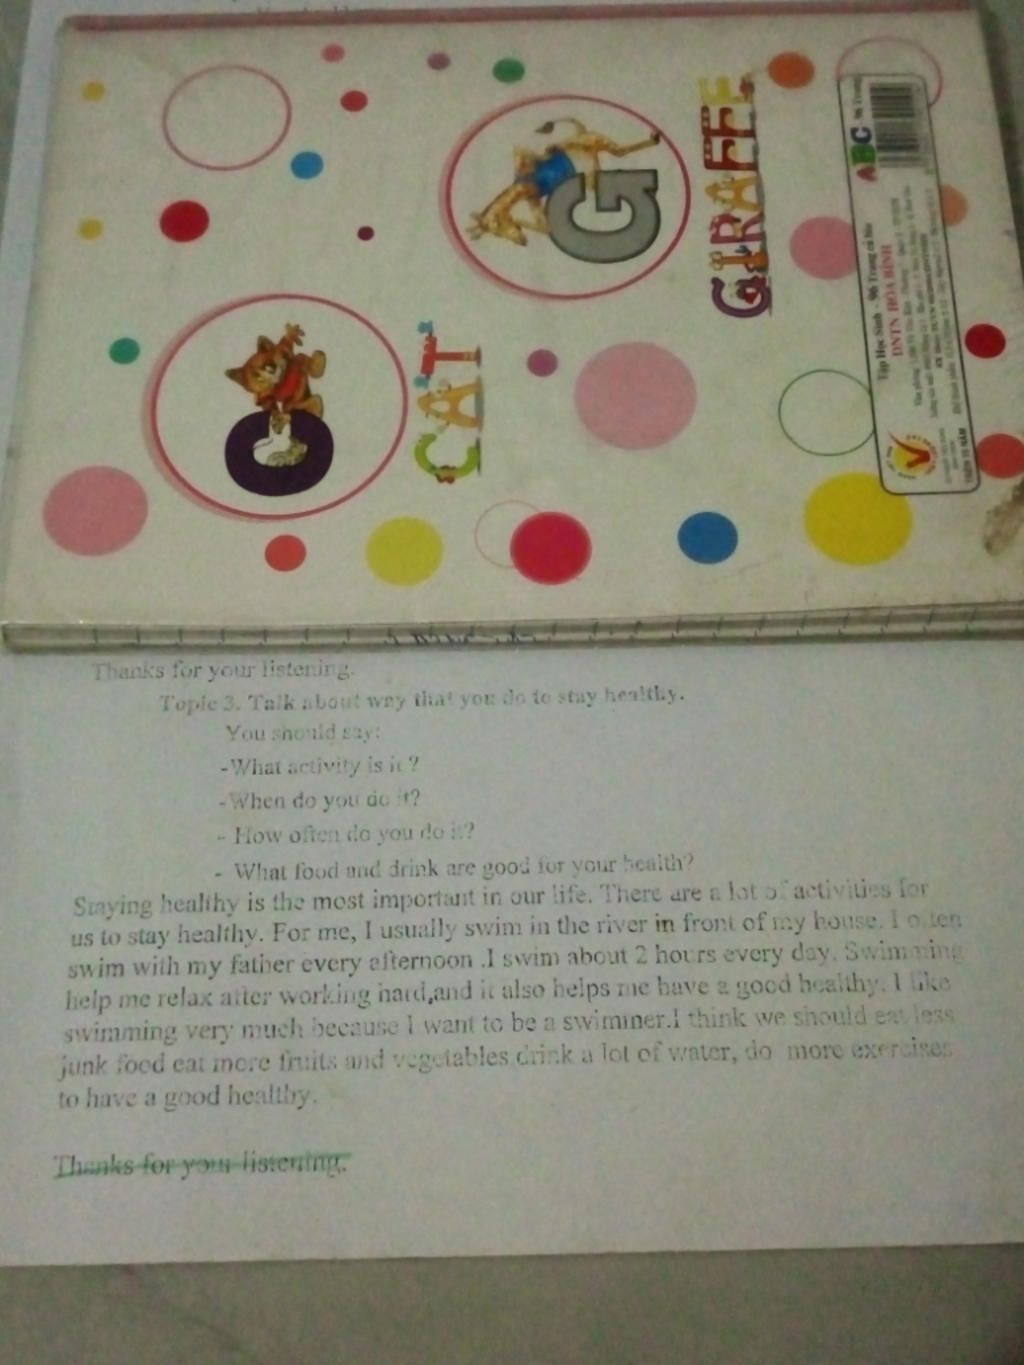 G
GIRAFFE
C
CAT
ABC
Tập Học Sinh - 96 Trang
DNTN HÒA BÌNH
Thanks for your listening.
Topic 3. Talk about way that you do to stay healthy.
You should say:
-What activity is it ?
-When do you do it?
- How often do you do it?
- What food and drink are good for your health?
Staying healthy is the most important in our life. There are a lot of activities for
us to stay healthy. For me, I usually swim in the river in front of my house. I often
swim with my father every afternoon .I swim about 2 hours every day. Swimming
help me relax after working hard,and it also helps me have a good healthy. I like
swimming very much because I want to be a swimmer.I think we should eat less
junk food eat more fruits and vegetables drink a lot of water, do more exercises
to have a good healthy.
Thanks for your listening.